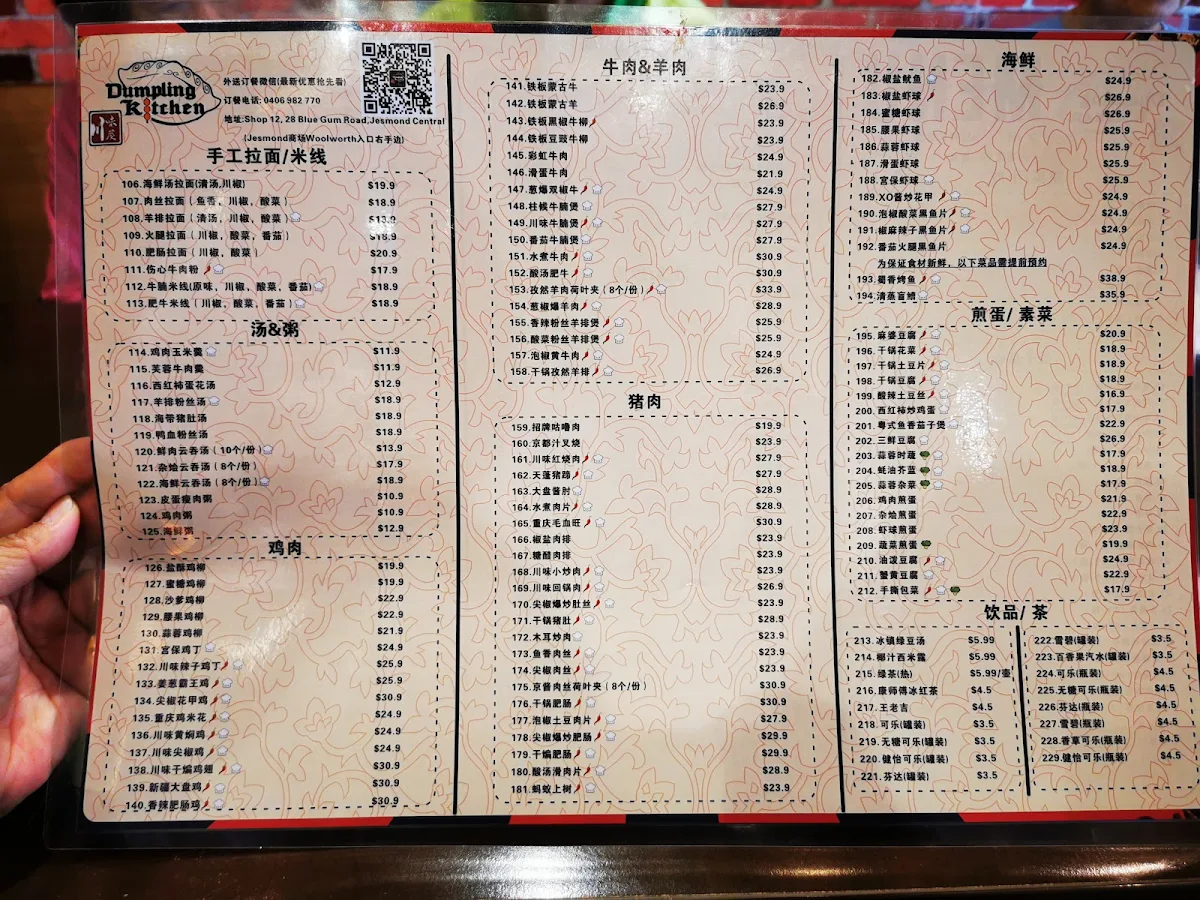 Dumpling
Kitchen
川味居
外送订餐微信(最新优惠抢先看)
订餐电话: 0406 982 770
地址:Shop 12, 28 Blue Gum Road,Jesmond Central
(Jesmond商场Woolworth入口右手边)
手工拉面/米线
106.海鲜汤拉面(清汤,川椒) $19.9
107.肉丝拉面(鱼香,川椒,酸菜) $18.9
108.羊排拉面(清汤,川椒,酸菜)
109.火腿拉面(川椒,酸菜,番茄) $18.9
110.肥肠拉面(川椒,酸菜) $20.9
111.伤心牛肉粉 $17.9
112.牛腩米线(原味,川椒,酸菜,番茄) $18.9
113.肥牛米线(川椒,酸菜,番茄) $18.9
汤&粥
114.鸡肉玉米羹 $11.9
115.芙蓉牛肉羹 $11.9
116.西红柿蛋花汤 $12.9
117.羊排粉丝汤 $18.9
118.海带猪肚汤 $18.9
119.鸭血粉丝汤 $18.9
120.鲜肉云吞汤(10个/份) $13.9
121.杂烩云吞汤(8个/份) $17.9
122.海鲜云吞汤(8个/份) $18.9
123.皮蛋瘦肉粥 $10.9
124.鸡肉粥 $10.9
125.海鲜粥 $12.9
鸡肉
126.盐酥鸡柳 $19.9
127.蜜糖鸡柳 $19.9
128.沙爹鸡柳 $22.9
129.腰果鸡柳 $22.9
130.蒜蓉鸡柳 $21.9
131.宫保鸡丁 $24.9
132.川味辣子鸡丁 $25.9
133.姜葱霸王鸡 $25.9
134.尖椒花甲鸡 $30.9
135.重庆鸡米花 $24.9
136.川味黄焖鸡 $24.9
137.川味尖椒鸡 $24.9
138.川味干煸鸡翅 $30.9
139.新疆大盘鸡 $30.9
140.香辣肥肠鸡 $30.9
牛肉&羊肉
141.铁板蒙古牛 $23.9
142.铁板蒙古羊 $26.9
143.铁板黑椒牛柳 $23.9
144.铁板豆豉牛柳 $23.9
145.彩虹牛肉 $24.9
146.滑蛋牛肉 $21.9
147.葱爆双椒牛 $24.9
148.柱候牛腩煲 $27.9
149.川味牛腩煲 $27.9
150.番茄牛腩煲 $27.9
151.水煮牛肉 $30.9
152.酸汤肥牛 $30.9
153.孜然羊肉荷叶夹(8个/份) $33.9
154.葱椒爆羊肉 $28.9
155.香辣粉丝羊排煲 $25.9
156.酸菜粉丝羊排煲 $25.9
157.泡椒黄牛肉 $24.9
158.干锅孜然羊排 $26.9
猪肉
159.招牌咕噜肉 $19.9
160.京都汁叉烧 $23.9
161.川味红烧肉 $27.9
162.天蓬猪蹄 $27.9
163.大盘酱肘 $28.9
164.水煮肉片 $28.9
165.重庆毛血旺 $30.9
166.椒盐肉排 $23.9
167.糖醋肉排 $23.9
168.川味小炒肉 $23.9
169.川味回锅肉 $26.9
170.尖椒爆炒肚丝 $23.9
171.干锅猪肚 $28.9
172.木耳炒肉 $23.9
173.鱼香肉丝 $23.9
174.尖椒肉丝 $23.9
175.京酱肉丝荷叶夹(8个/份) $30.9
176.干锅肥肠 $30.9
177.泡椒土豆肉片 $27.9
178.尖椒爆炒肥肠 $29.9
179.干煸肥肠 $29.9
180.酸汤滑肉片 $28.9
181.蚂蚁上树 $23.9
海鲜
182.椒盐鱿鱼 $24.9
183.椒盐虾球 $26.9
184.蜜糖虾球 $26.9
185.腰果虾球 $25.9
186.蒜蓉虾球 $25.9
187.滑蛋虾球 $25.9
188.宫保虾球 $25.9
189.XO酱炒花甲 $24.9
190.泡椒酸菜黑鱼片 $24.9
191.椒麻辣子黑鱼片 $24.9
192.番茄火腿黑鱼片 $24.9
为保证食材新鲜,以下菜品需提前预约
193.蜀香烤鱼 $38.9
194.清蒸盲鰽 $35.9
煎蛋/ 素菜
195.麻婆豆腐 $20.9
196.干锅花菜 $18.9
197.干锅土豆片 $18.9
198.干锅豆腐 $18.9
199.酸辣土豆丝 $16.9
200.西红柿炒鸡蛋 $17.9
201.粤式鱼香茄子煲 $22.9
202.三鲜豆腐 $26.9
203.蒜蓉时蔬 $17.9
204.蚝油芥蓝 $18.9
205.蒜蓉杂菜 $17.9
206.鸡肉煎蛋 $21.9
207.杂烩煎蛋 $22.9
208.虾球煎蛋 $23.9
209.蔬菜煎蛋 $19.9
210.油泼豆腐 $24.9
211.蟹黄豆腐 $22.9
212.手撕包菜 $17.9
饮品/ 茶
213.冰镇绿豆汤 $5.99
214.椰汁西米露 $5.99
215.绿茶(热) $5.99/壶
216.康师傅冰红茶 $4.5
217.王老吉 $4.5
218.可乐(罐装) $3.5
219.无糖可乐(罐装) $3.5
220.健怡可乐(罐装) $3.5
221.芬达(罐装) $3.5
222.雪碧(罐装) $3.5
223.百香果汽水(罐装) $3.5
224.可乐(瓶装) $4.5
225.无糖可乐(瓶装) $4.5
226.芬达(瓶装) $4.5
227.雪碧(瓶装) $4.5
228.香草可乐(瓶装) $4.5
229.健怡可乐(瓶装) $4.5